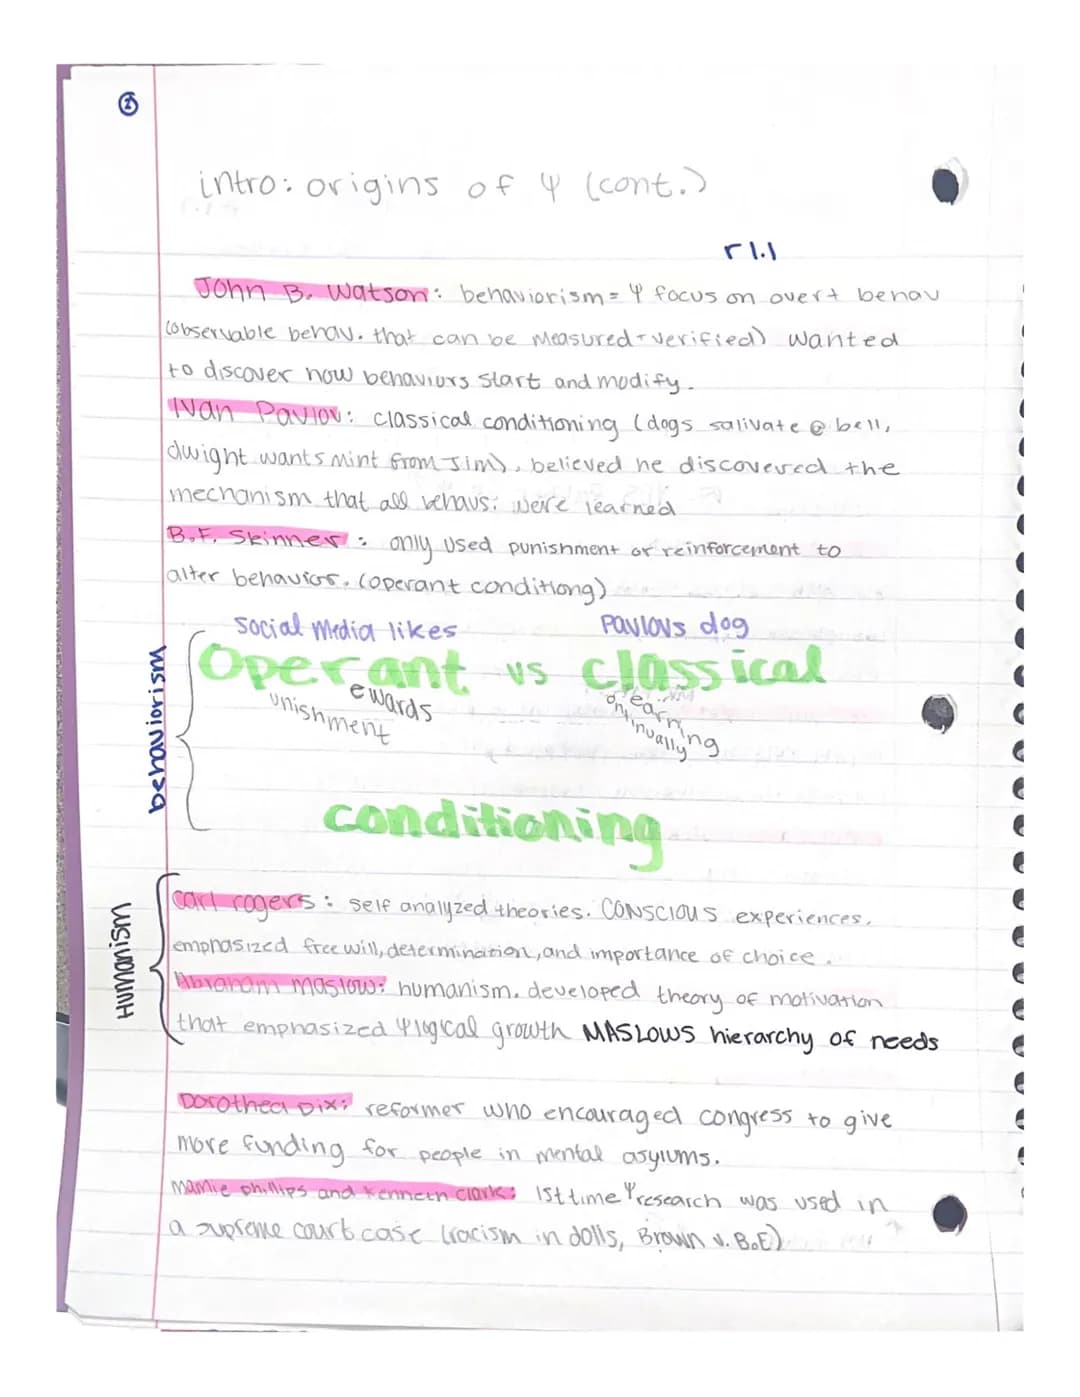 ②
intro: origins of Ψ (cont.)
r1.1
John B. Watson: behaviorism = Ψ focus on overt behav
(observable behav. that can be measured + verified) wanted
to discover how behaviors start and modify.
Ivan Pavlov: classical conditioning (dogs salivate @ bell,
dwight wants mint from Jim), believed he discovered the
mechanism that all behavs. were learned
B.F. Skinner: only used punishment or reinforcement to
alter behavior. (operant conditiong)
social media likes
Pavlovs dog
Operant vs classical
ewards
unishment
earning
ontinually
conditioning
behaviorism
Carl rogers: self analyzed theories. CONSCIOUS experiences.
emphasized free will, determination, and importance of choice.
Abraham maslow: humanism. developed theory of motivation
that emphasized Ψlogical growth MASLOWS hierarchy of needs
Humanism
Dorothea Dix: reformer who encouraged congress to give
more funding for people in mental asylums.
Mamie phillips and Kenneth Clark: 1st time Ψresearch was used in
a supreme court case (racism in dolls, Brown v. B.o.E)